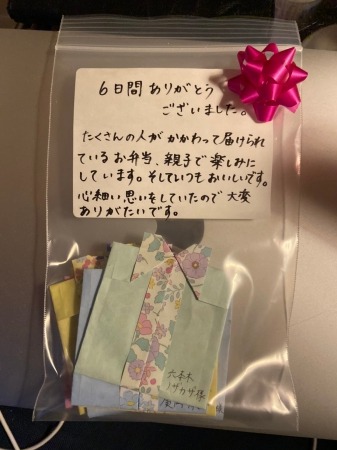 6日間 ありがとう
ございました。
たくさんの人が かかわって届けられ
ているお弁当、親子で楽しみに
しています。そしていつもおいしいです。
心細い思いをしていたので 大変
ありがたいです。
六本木
ノザカザ様
様